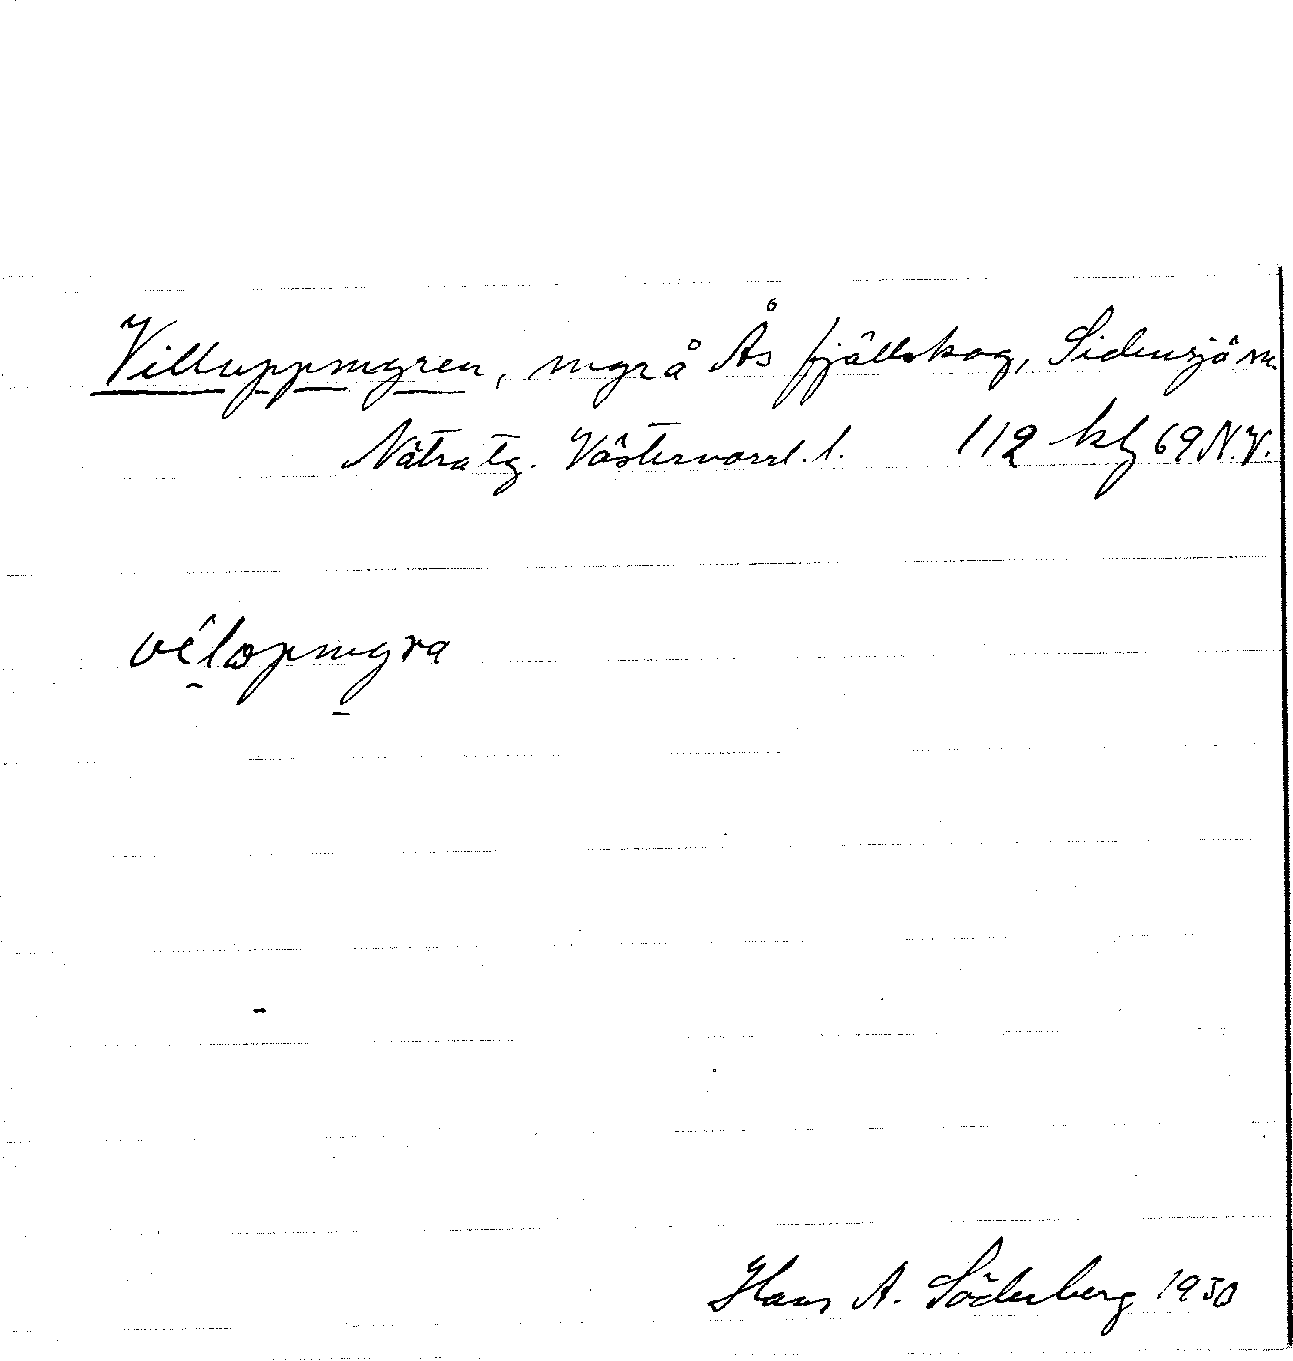 Villuppmyren, myr å Ås fjällskog, Sidensjö sn.
Nätra tg. Västernorrl. l. 112 kh 69 N.V.
vélopmyra
Hans A. Söderberg 1930